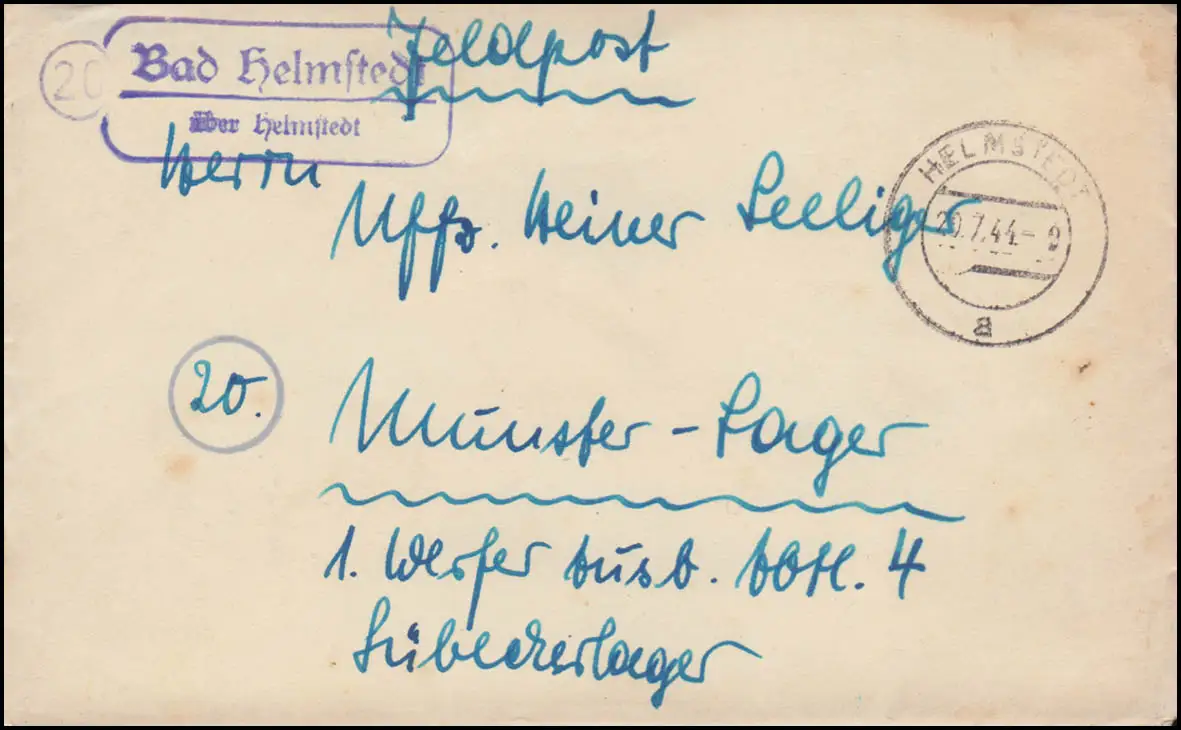 Feldpost
20
Bad Helmstedt
über Helmstedt
Herrn
Uffz. Heiner Seeliger
HELMSTEDT
20.7.44-9
a
20.
Munster-Lager
1. Werfer Ausb. Abtl. 4
Lübeckerlager